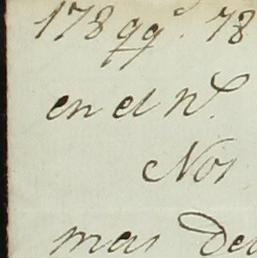 178 qq.s 78
en el n.o
Nos
mas De